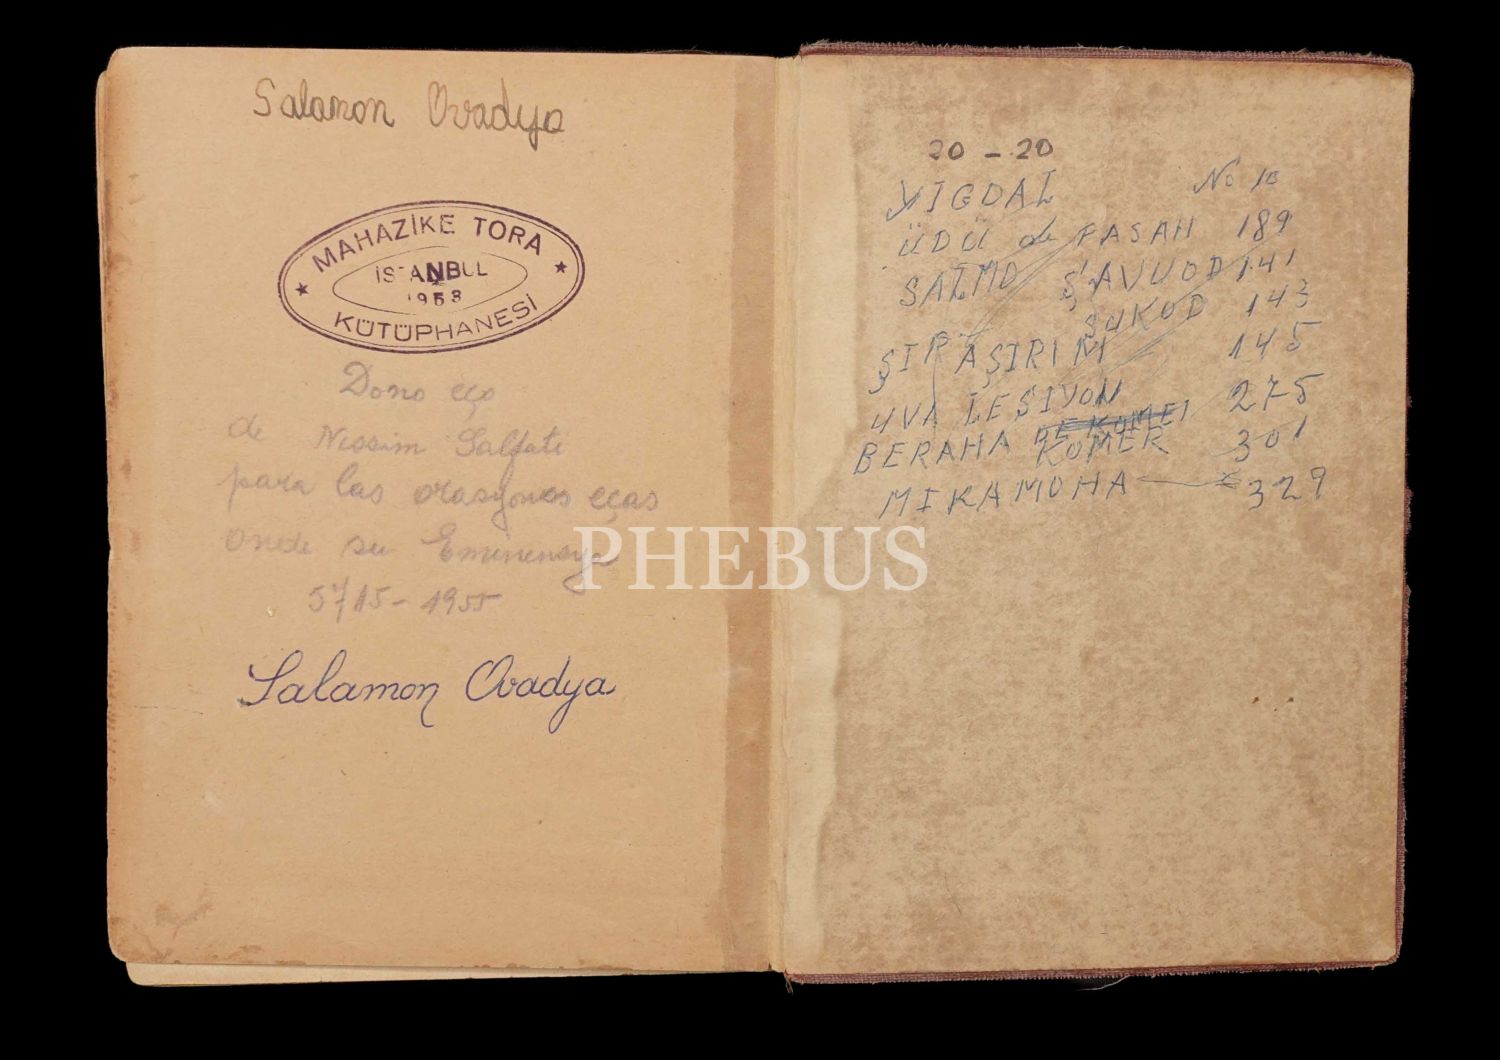 Salamon Ovadya
MAHAZİKE TORA
İSTANBUL
1953
KÜTÜPHANESİ
Dono eço
de Nessim Salfati
para las orasyones eças
onde su Eminensya
5715 - 1955
Salamon Ovadya
20 - 20
YIGDAL No 10
ÜDÜ de PASAH 189
SALMO ŞAVUOD 141
SUKOD 143
ŞIR AŞIRIM 145
UVA LESIYON 275
BERAHA KOMER 301
MIKAMOHA 329
PHEBUS